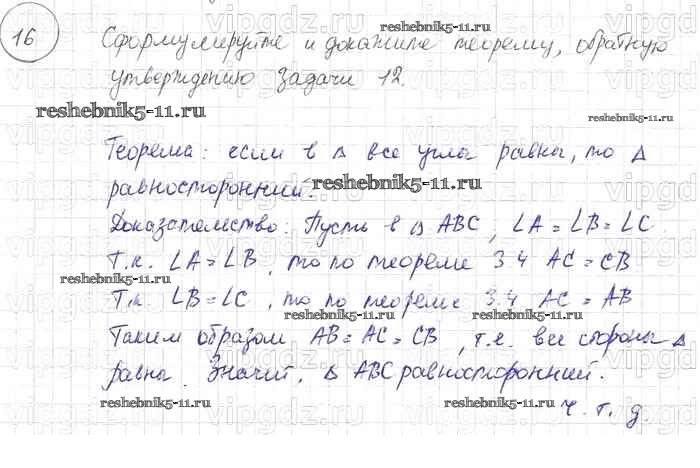 16
Сформулируйте и докажите теорему, обратную
утверждению задачи 12.
Теорема: если в △ все углы равны, то △
равносторонний.
Доказательство: Пусть в △ ABC, ∠A = ∠B = ∠C
Т.к. ∠A = ∠B, то по теореме 3.4 AC = CB
Т.к. ∠B = ∠C, то по теореме 3.4 AC = AB
Таким образом AB = AC = CB, т.е. все стороны △
равны. Значит, △ ABC равносторонний.
ч.т.д.
reshebnik5-11.ru
reshebnik5-11.ru
reshebnik5-11.ru
reshebnik5-11.ru
reshebnik5-11.ru
reshebnik5-11.ru
reshebnik5-11.ru
reshebnik5-11.ru
reshebnik5-11.ru